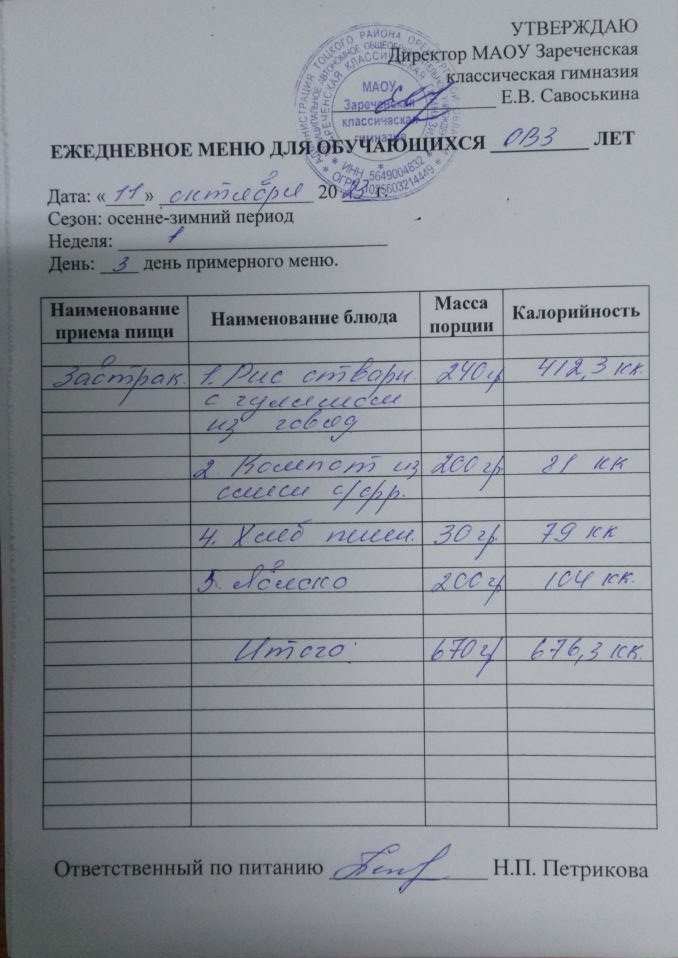 УТВЕРЖДАЮ
Директор МАОУ Зареченская
классическая гимназия
Е.В. Савоськина
МАОУ
Зареченская
классическая
гимназия
* ИНН 5649004832 *
* ОГРН 1025603214449 *
ЕЖЕДНЕВНОЕ МЕНЮ ДЛЯ ОБУЧАЮЩИХСЯ ОВЗ ЛЕТ
Дата: « 11 » октября 20 23 г.
Сезон: осенне-зимний период
Неделя: 1
День: 3 день примерного меню.
Наименование приема пищи Наименование блюда Масса порции Калорийность
Завтрак 1. Рис отварн. 240гр 412,3 кк.
с гуляшом
из говяд
2 Компот из 200гр 81 кк
смеси с/фр.
4. Хлеб пшен. 30гр 79 кк
5. Яблоко 200гр 104 кк.
Итого: 670гр 676,3 кк.
Ответственный по питанию Н.П. Петрикова